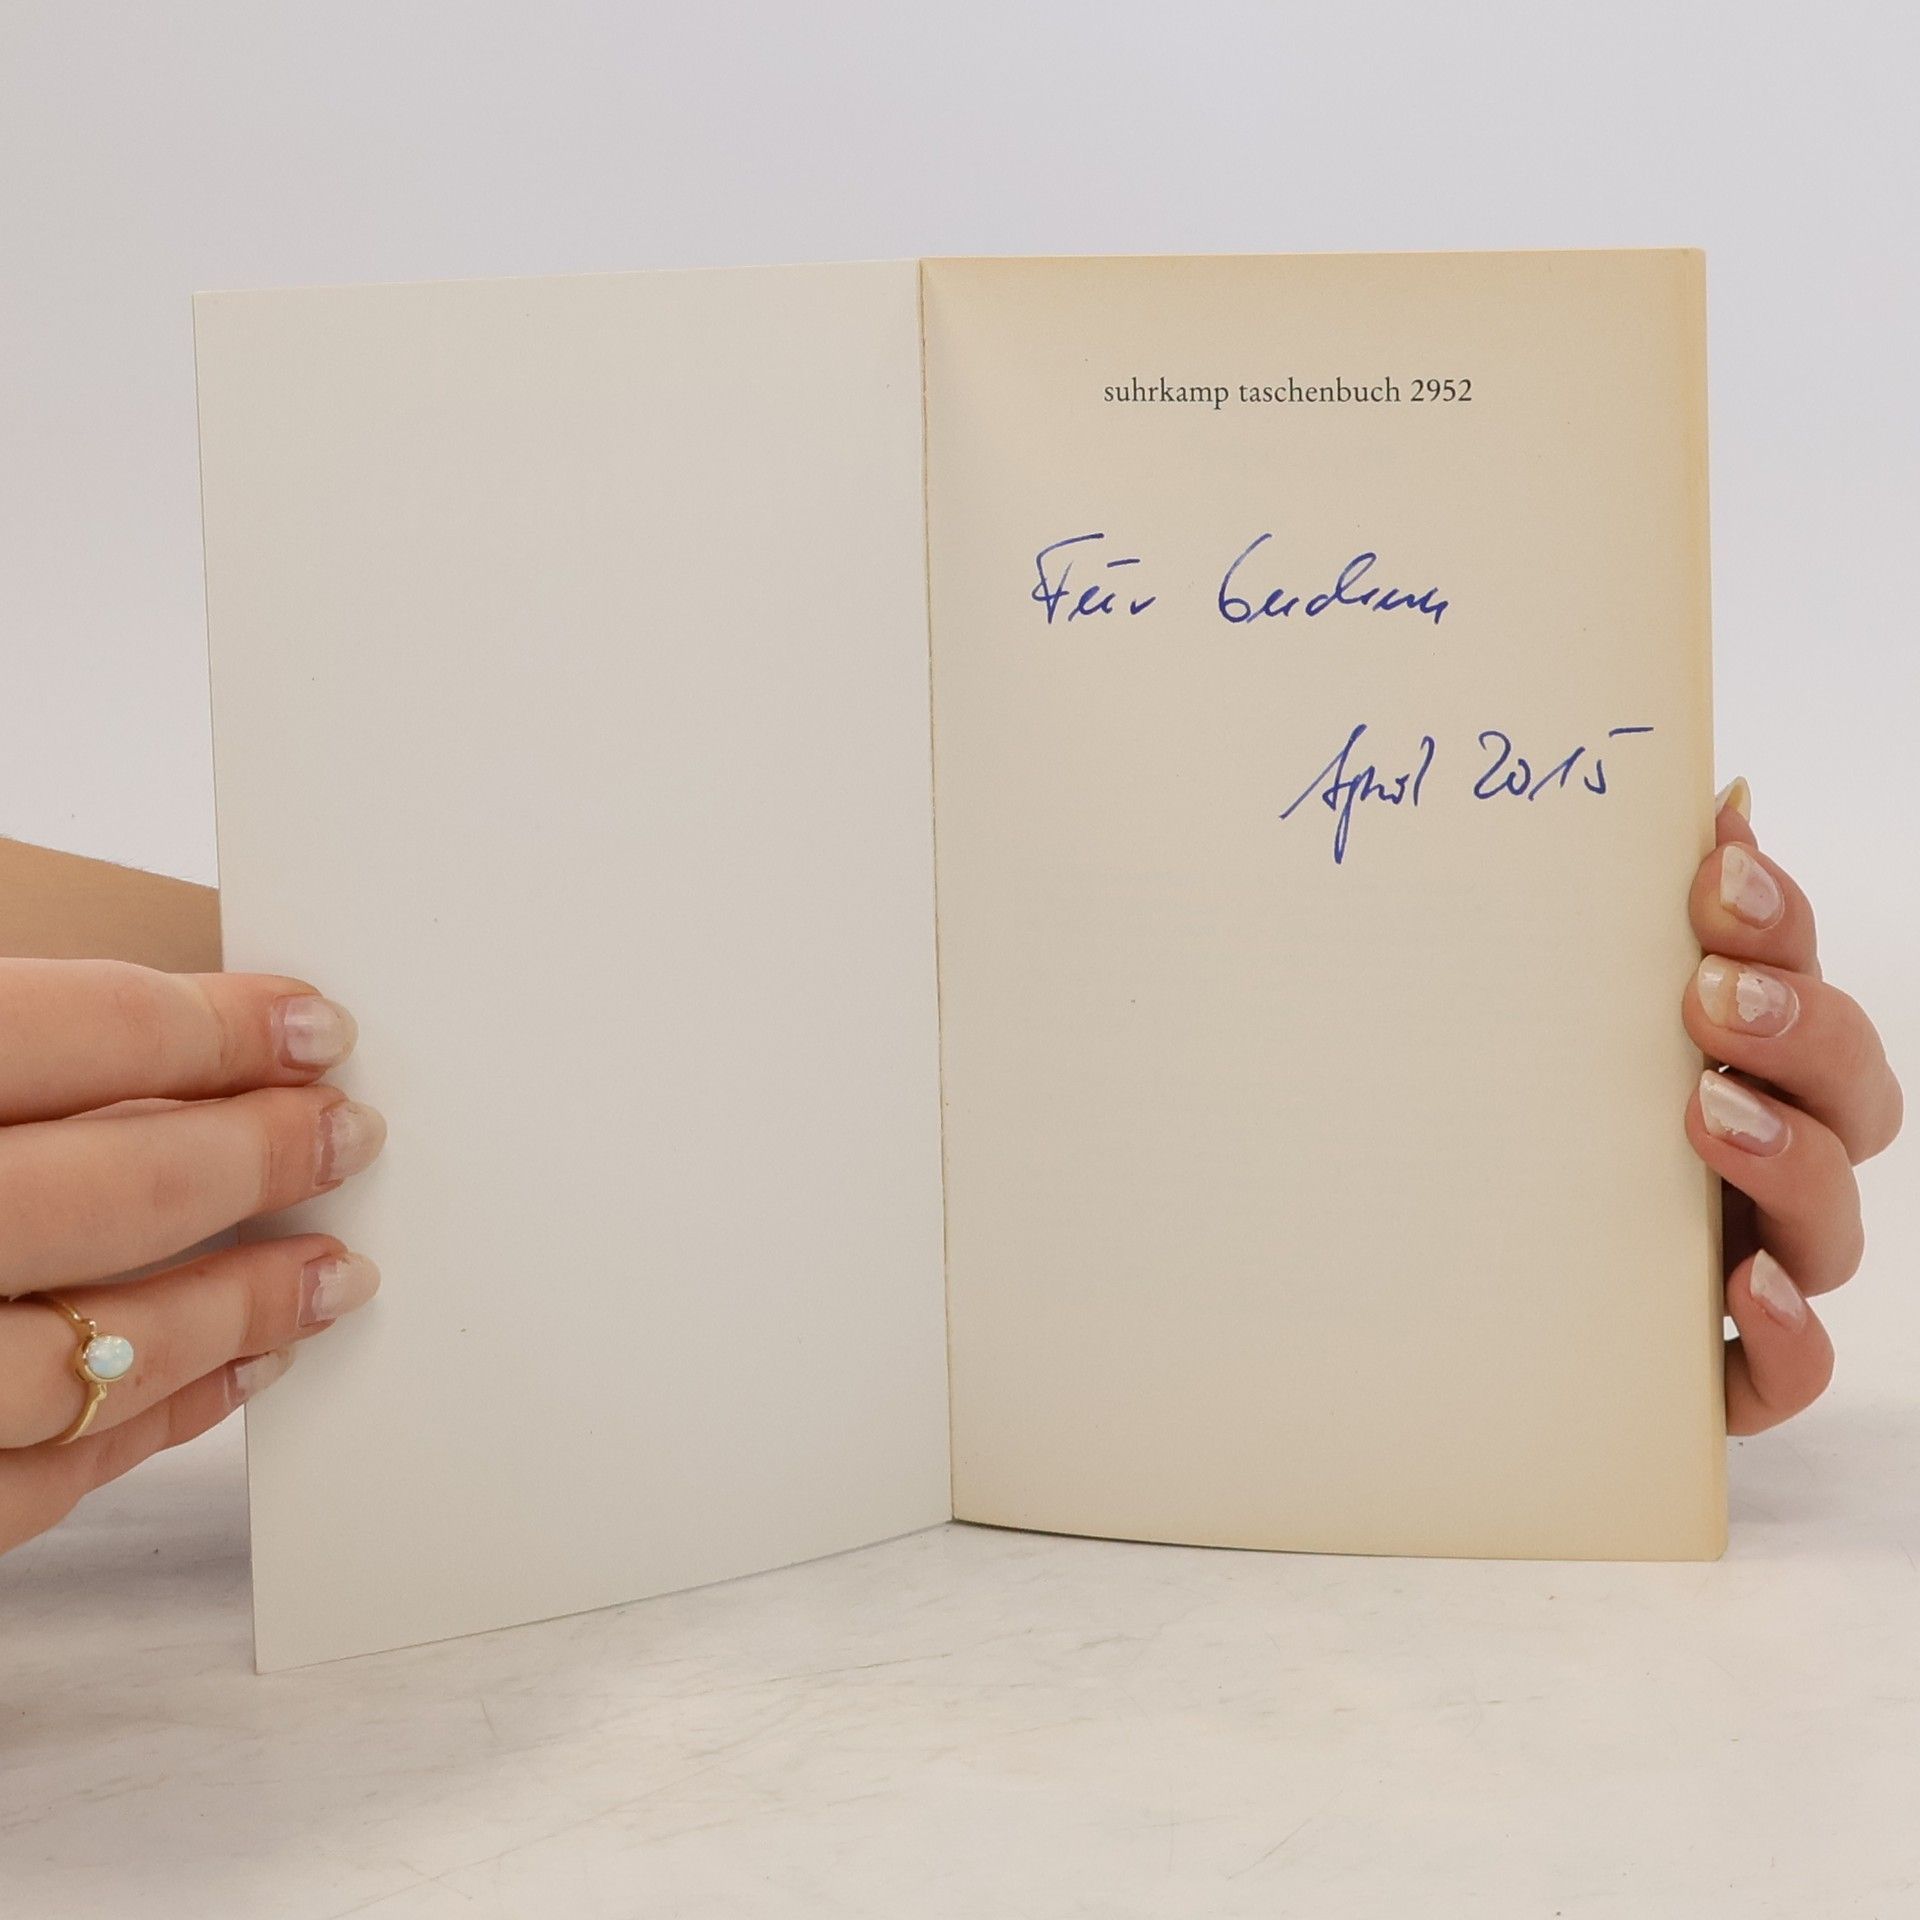 suhrkamp taschenbuch 2952
Für Gudrun
April 2015